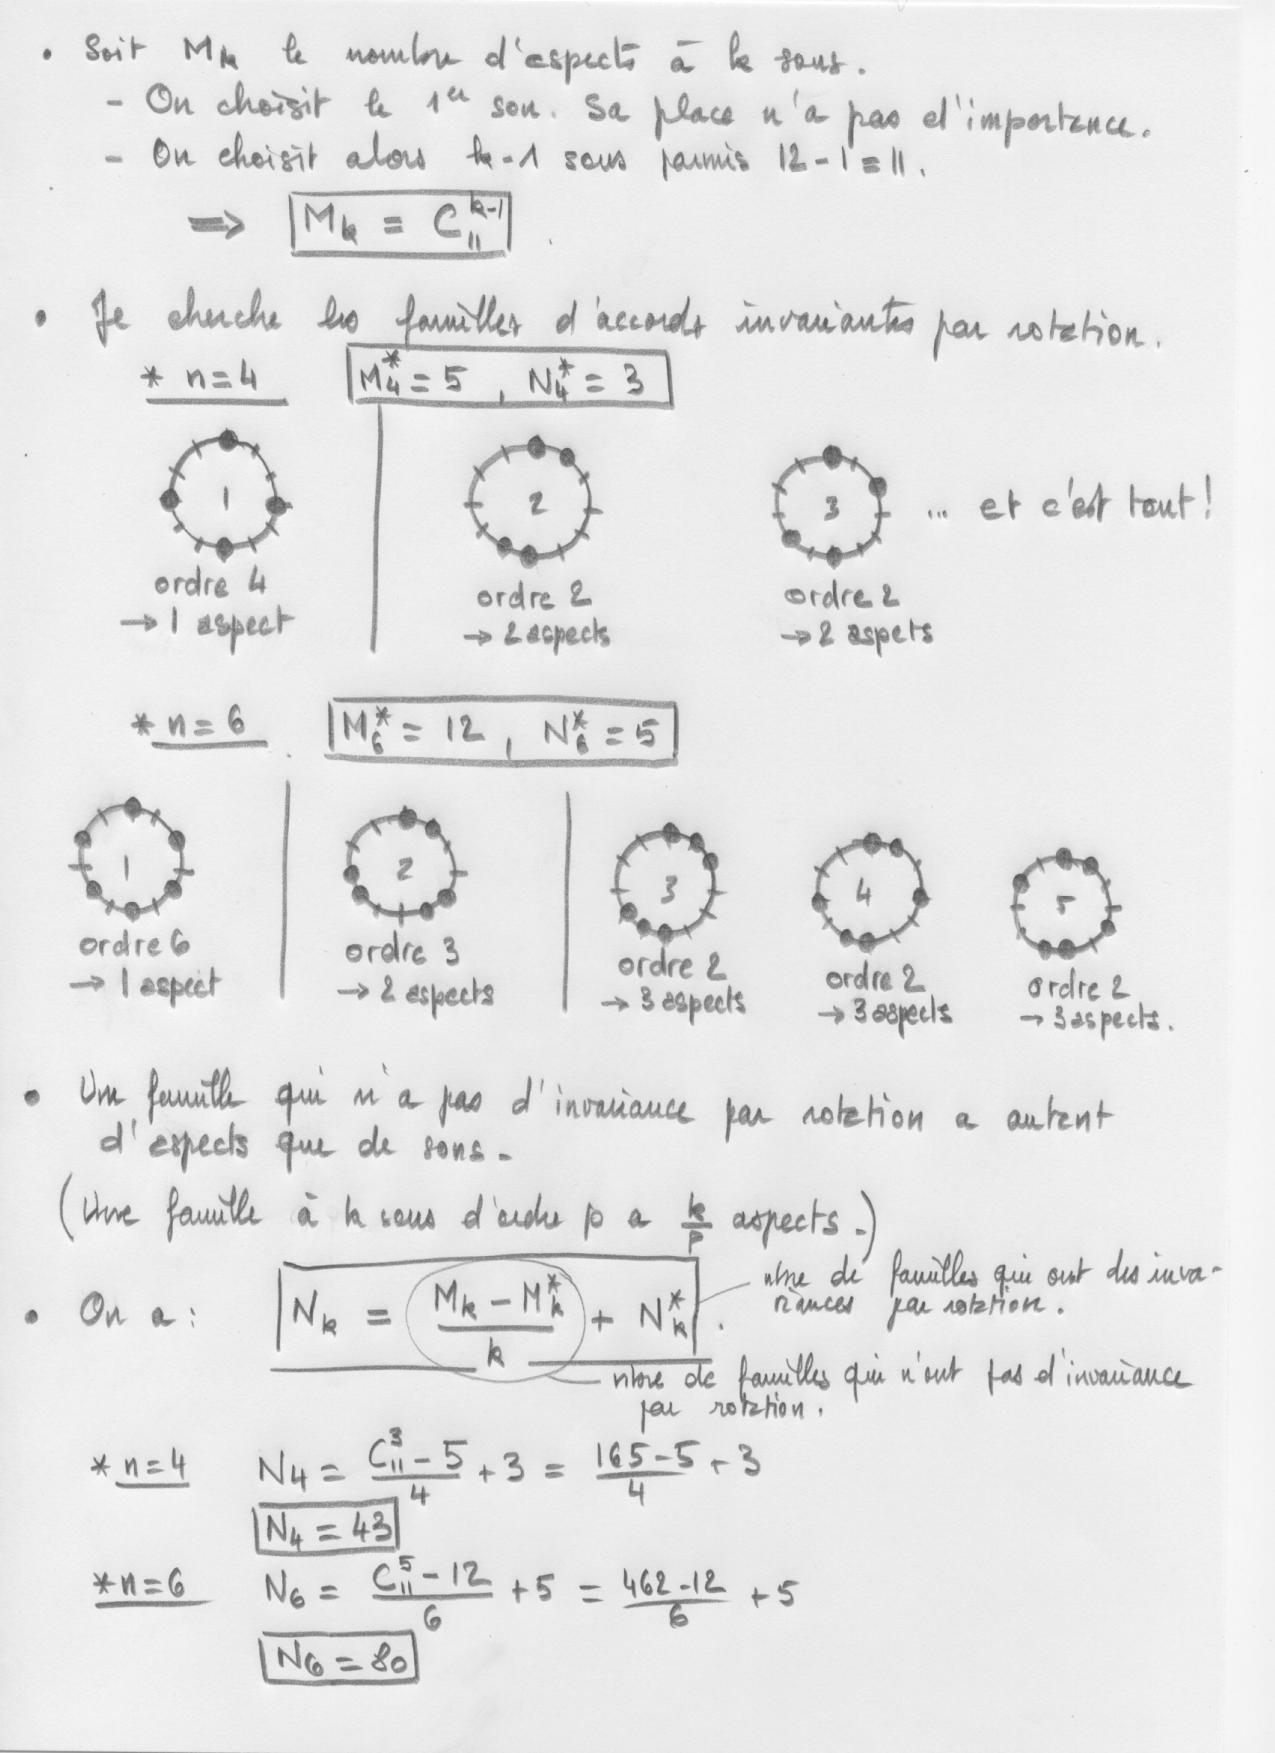 • Soit Mk le nombre d'aspects à k sons.
- On choisit le 1er son. Sa place n'a pas d'importance.
- On choisit alors k-1 sons parmis 12-1=11.
⇒ Mk = C₁₁^(k-1)
• Je cherche les familles d'accords invariantes par rotation.
* n=4 M₄* = 5, N₄* = 3
1 2 3 ... et c'est tout !
ordre 4 ordre 2 ordre 2
→ 1 aspect → 2 aspects → 2 aspets
* n=6 M₆* = 12, N₆* = 5
1 2 3 4 5
ordre 6 ordre 3 ordre 2 ordre 2 ordre 2
→ 1 aspect → 2 aspects → 3 aspects → 3 aspects → 3 aspects.
• Une famille qui n'a pas d'invariance par rotation a autant
d'aspects que de sons.
(Une famille à k sons d'ordre p a k/p aspects.)
• On a : Nk = (Mk - Mk*)/k + Nk*.
nbre de familles qui ont des inva-
riances par rotation.
nbre de familles qui n'ont pas d'invariance
par rotation.
* n=4 N₄ = (C₁₁³ - 5)/4 + 3 = (165-5)/4 + 3
N₄ = 43
* n=6 N₆ = (C₁₁⁵ - 12)/6 + 5 = (462-12)/6 + 5
N₆ = 80